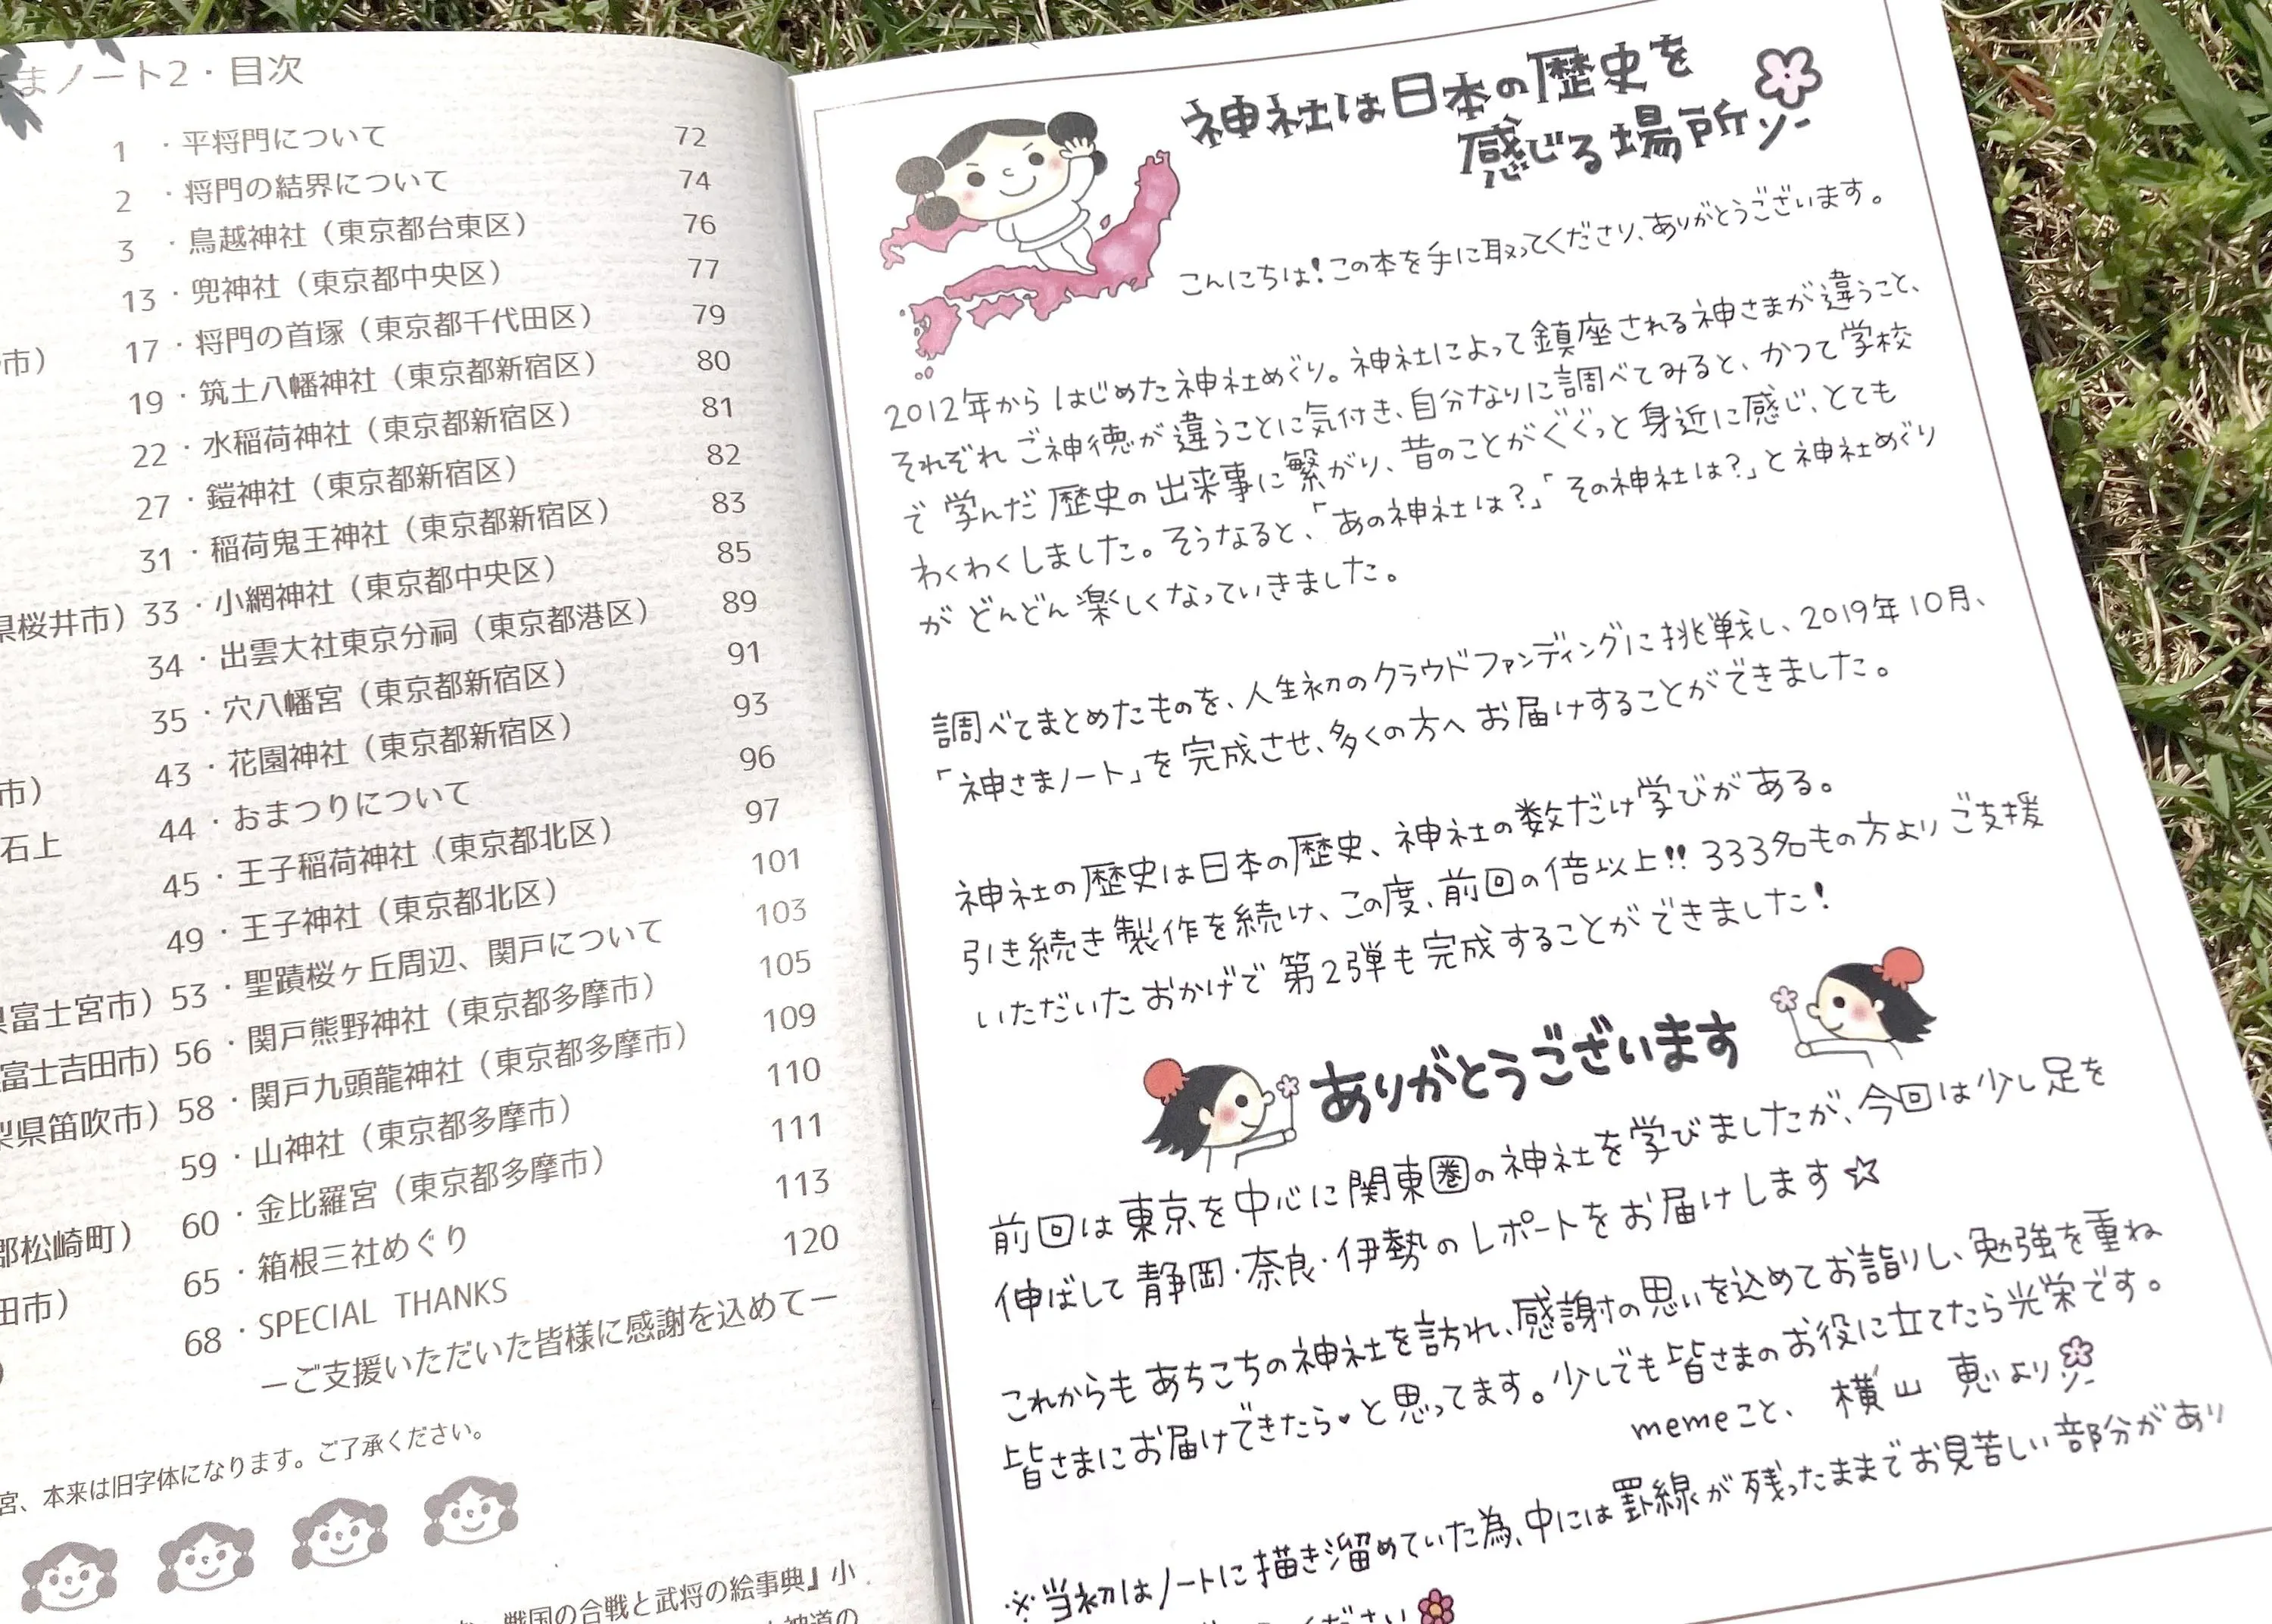 まノート2・目次
1 ・平将門について 72
2 ・将門の結界について 74
3 ・鳥越神社（東京都台東区） 76
13 ・兜神社（東京都中央区） 77
市） 17 ・将門の首塚（東京都千代田区） 79
19 ・筑土八幡神社（東京都新宿区） 80
22 ・水稲荷神社（東京都新宿区） 81
27 ・鎧神社（東京都新宿区） 82
31 ・稲荷鬼王神社（東京都新宿区） 83
県桜井市）33 ・小網神社（東京都中央区） 85
34 ・出雲大社東京分祠（東京都港区） 89
35 ・穴八幡宮（東京都新宿区） 91
市） 43 ・花園神社（東京都新宿区） 93
石上 44 ・おまつりについて 96
45 ・王子稲荷神社（東京都北区） 97
49 ・王子神社（東京都北区） 101
県富士宮市）53 ・聖蹟桜ヶ丘周辺、関戸について 103
富士吉田市）56 ・関戸熊野神社（東京都多摩市） 105
梨県笛吹市）58 ・関戸九頭龍神社（東京都多摩市） 109
59 ・山神社（東京都多摩市） 110
郡松崎町） 60 ・金比羅宮（東京都多摩市） 111
田市） 65 ・箱根三社めぐり 113
） 68 ・SPECIAL THANKS 120
ーご支援いただいた皆様に感謝を込めてー
宮、本来は旧字体になります。ご了承ください。
戦国の合戦と武将の絵事典』小
神道の
神社は日本の歴史を
感じる場所
こんにちは!この本を手に取ってくださり、ありがとうございます。
2012年からはじめた神社めぐり。神社によって鎮座される神さまが違うこと、
それぞれご神徳が違うことに気付き、自分なりに調べてみると、かつて学校
で学んだ歴史の出来事に繋がり、昔のことがぐぐっと身近に感じ、とても
わくわくしました。そうなると、「あの神社は?」「その神社は?」と神社めぐり
がどんどん楽しくなっていきました。
調べてまとめたものを、人生初のクラウドファンディングに挑戦し、2019年10月、
「神さまノート」を完成させ、多くの方へお届けすることができました。
神社の歴史は日本の歴史、神社の数だけ学びがある。
引き続き製作を続け、この度、前回の倍以上!!333名もの方よりご支援
いただいたおかげで第2弾も完成することができました!
ありがとうございます
前回は東京を中心に関東圏の神社を学びましたが、今回は少し足を
伸ばして静岡・奈良・伊勢のレポートをお届けします☆
これからもあちこちの神社を訪れ、感謝の思いを込めてお詣りし、勉強を重ね
皆さまにお届けできたら♥と思ってます。少しでも皆さまのお役に立てたら光栄です。
memeこと、横山 恵より
※当初はノートに描き溜めていた為、中には罫線が残ったままでお見苦しい部分があり
ください